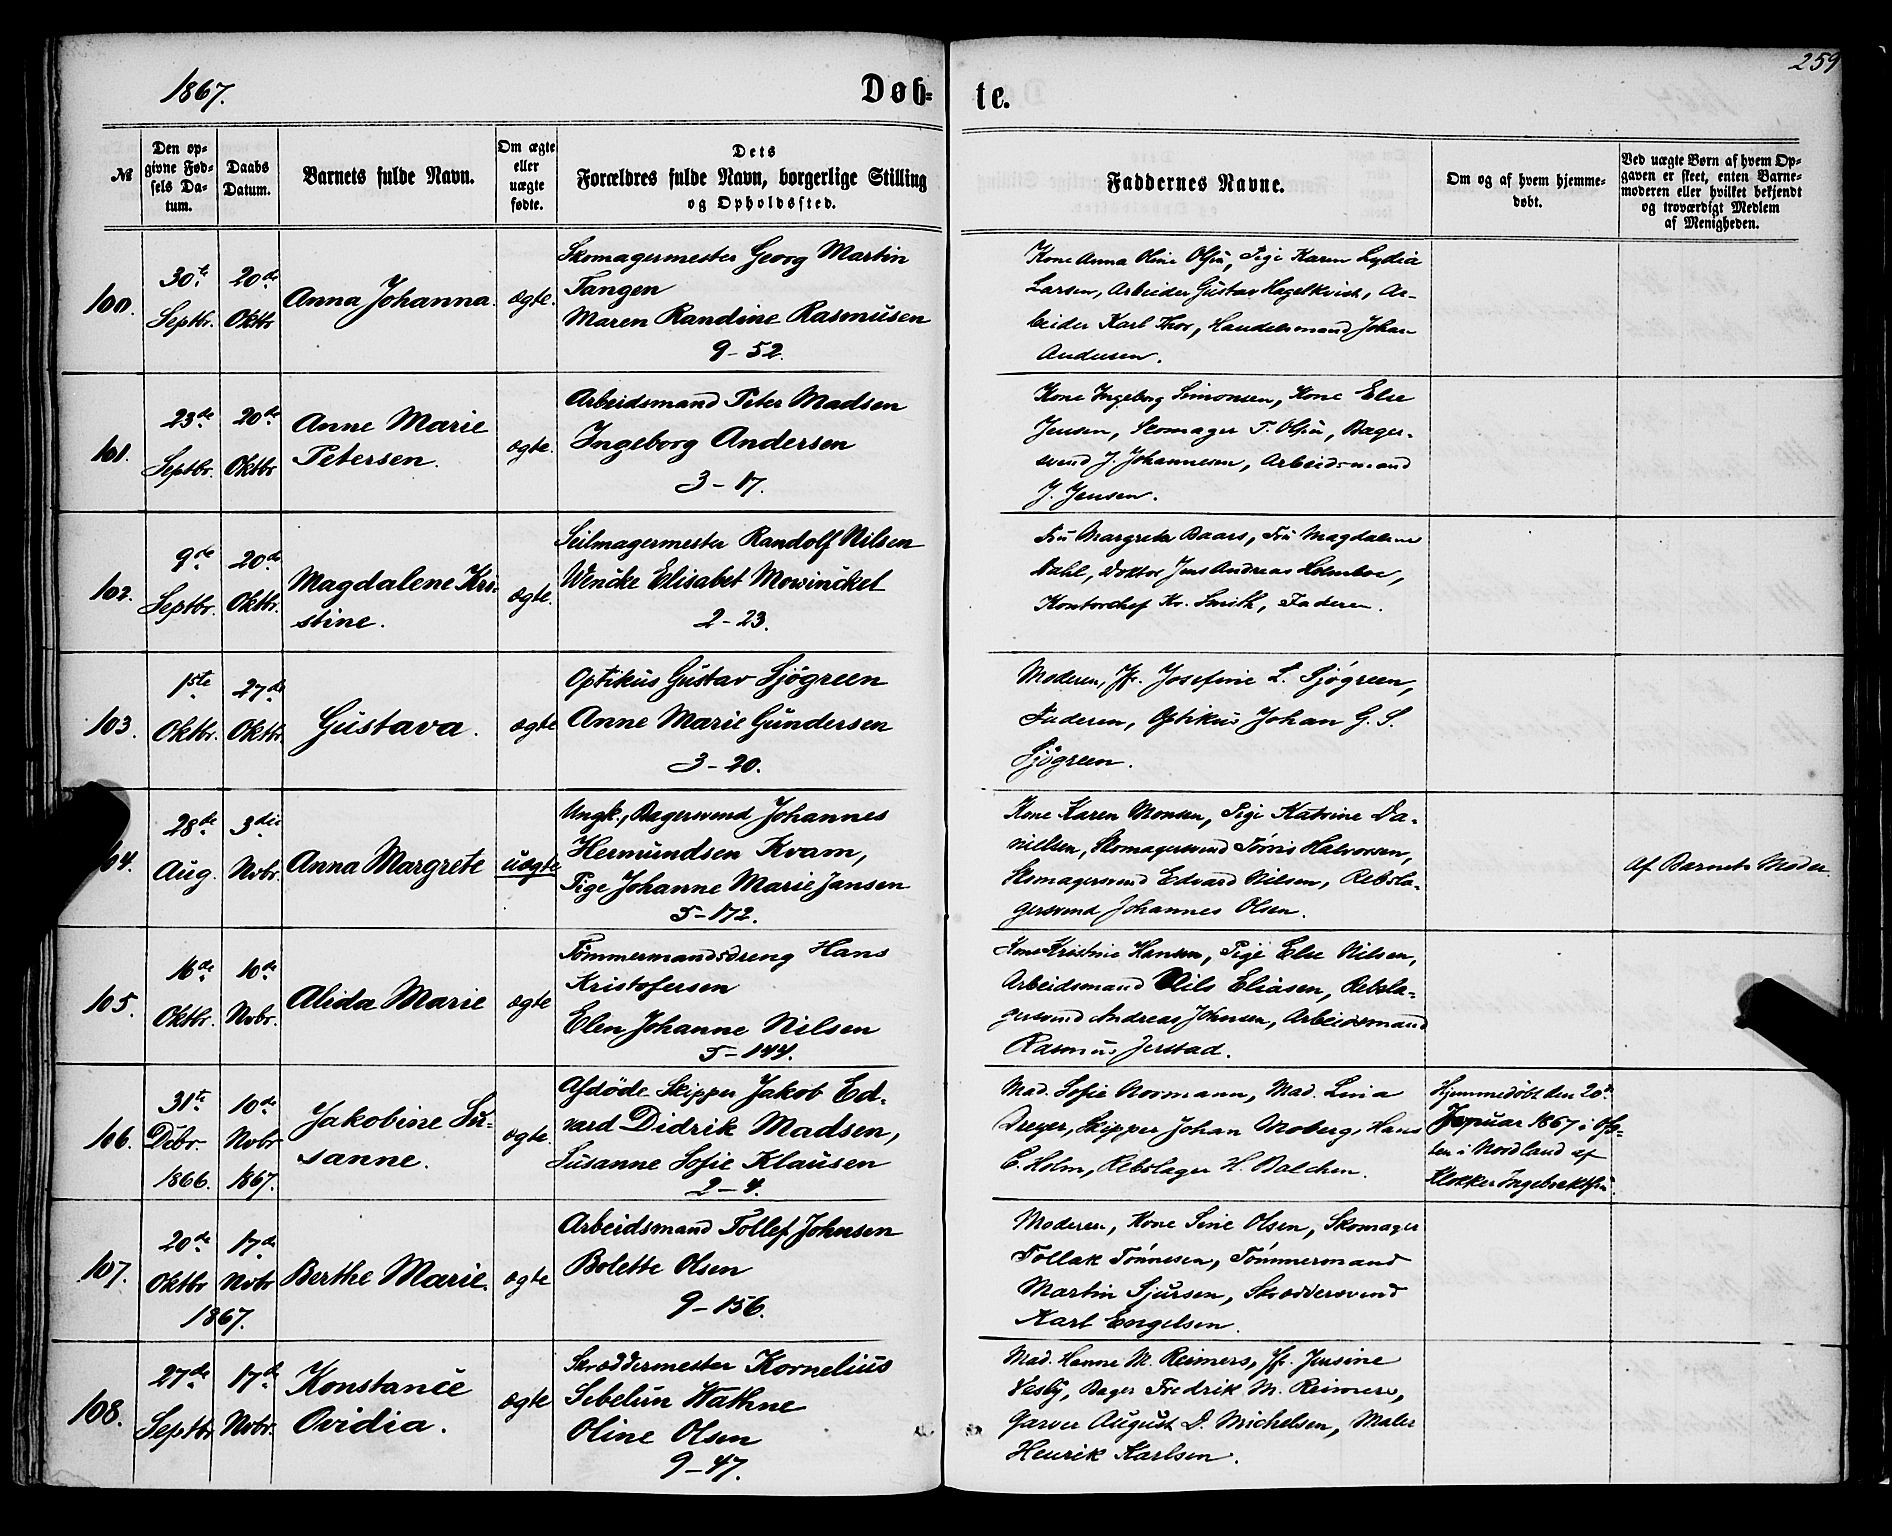 259
1867.
Døb-
te.
№
Den op-
givne Fød-
sels Da-
tum.
Daabs
Datum.
Barnets fulde Navn.
Om ægte
eller
uægte
fødte.
Dets
Forældres fulde Navn, borgerlige Stilling
og Opholdssted.
Faddernes Navne.
Om og af hvem hjemme-
døbt.
Ved uægte Børn af hvem Op-
gaven er skeet, enten Barne-
moderen eller hvilket bekjendt
og troværdigt Medlem
af Menigheden.
100.
30te
Septbr.
20de
Oktbr
Anna Johanna.
ægte.
Skomagermester Georg Martin
Tangen
Maren Randine Rasmusen
9-52.
Kone Anna Oline Olsen, Pige Karen Lydia
Larsen, Arbeider Gustav Hagelkvist, Ar-
beider Karl Thor, Handelsmand Johan
Andersen.
101.
23de
Septbr.
20de
Oktbr
Anne Marie
Petersen.
ægte.
Arbeidsmand Peter Madsen
Ingeborg Andersen
3-17.
Kone Ingeborg Simonsen, Kone Else
Jensen, Skomager T. Olsen, Bager-
svend J. Johannesen, Arbeidsmand
J. Jensen.
102.
9de
Septbr.
20de
Oktbr.
Magdalene Kri-
stine.
ægte.
Seilmagermester Randolf Nilsen
Wencke Elisabet Mowinckel
2-23.
Fru Margrete Baars, Fru Magdalene
Dahl, Doktor Jens Andreas Holmboe,
Kontorchef Kr. Smith, Faderen.
103.
1ste
Oktbr.
27de
Oktbr.
Gustava.
ægte
Optikus Gustav Sjögreen
Anne Marie Gundersen
3-20.
Moderen, Jfr. Josefine L. Sjögreen,
Faderen, Optikus Johan G. S.
Sjögreen.
104.
28de
Aug.
3die
Nvbr.
Anna Margrete
uægte
Ungk., Bagersvend Johannes
Hermundsen Kvam,
Pige Johanne Marie Jansen
5-172.
Kone Karen Monsen, Pige Katrine Da-
nielsen, Skomagersvend Tørris Halvorsen,
Skomagersvend Edvard Nilsen, Rebsla-
gersvend Johannes Olsen.
Af Barnets Moder.
105.
16de
Oktbr.
10de
Nvbr.
Alida Marie
ægte
Tömmermandsdreng Hans
Kristofersen
Elen Johanne Nilsen
5-144.
Kone Kristine Hansen, Pige Else Nilsen,
Arbeidsmand Nils Eliasen, Rebsla-
gersvend Andreas Johnsen, Arbeidsmand
Rasmus Jerstad.
106.
31te
Dcbr.
1866.
10de
Nvbr
1867.
Jakobine Su-
sanne.
ægte.
Afdöde Skipper Jakob Ed-
vard Didrik Madsen,
Susanne Sofie Klausen
2-4.
Mad. Sofie Normann, Mad. Lina
Dreyer, Skipper Johan Moberg, Hans
C. Holm, Rebslager H. Balchen.
Hjemmedöbt den 20de
Januar 1867 i Ofo-
ten i Nordland af
Klokker Ingebrektsen.
107.
20de
Oktbr
1867.
17de
Nvbr
Berthe Marie.
ægte
Arbeidsmand Tollef Johnsen
Bolette Olsen
9-156.
Moderen, Kone Sine Olsen, Skomager
Tollak Tönnesen, Tömmermand
Martin Sjursen, Skræddersvend
Karl Engelsen.
108.
27de
Septbr
17de
Nvbr.
Konstance
Ovidia.
ægte
Skræddermester Kornelius
Sebeliun Wathne
Oline Olsen
9-47.
Mad. Hanne M. Reimers, Jfr. Jensine
Vesby, Bager Fredrik M. Reimers,
Garver August D. Michelsen, Maler
Henrik Karlsen.